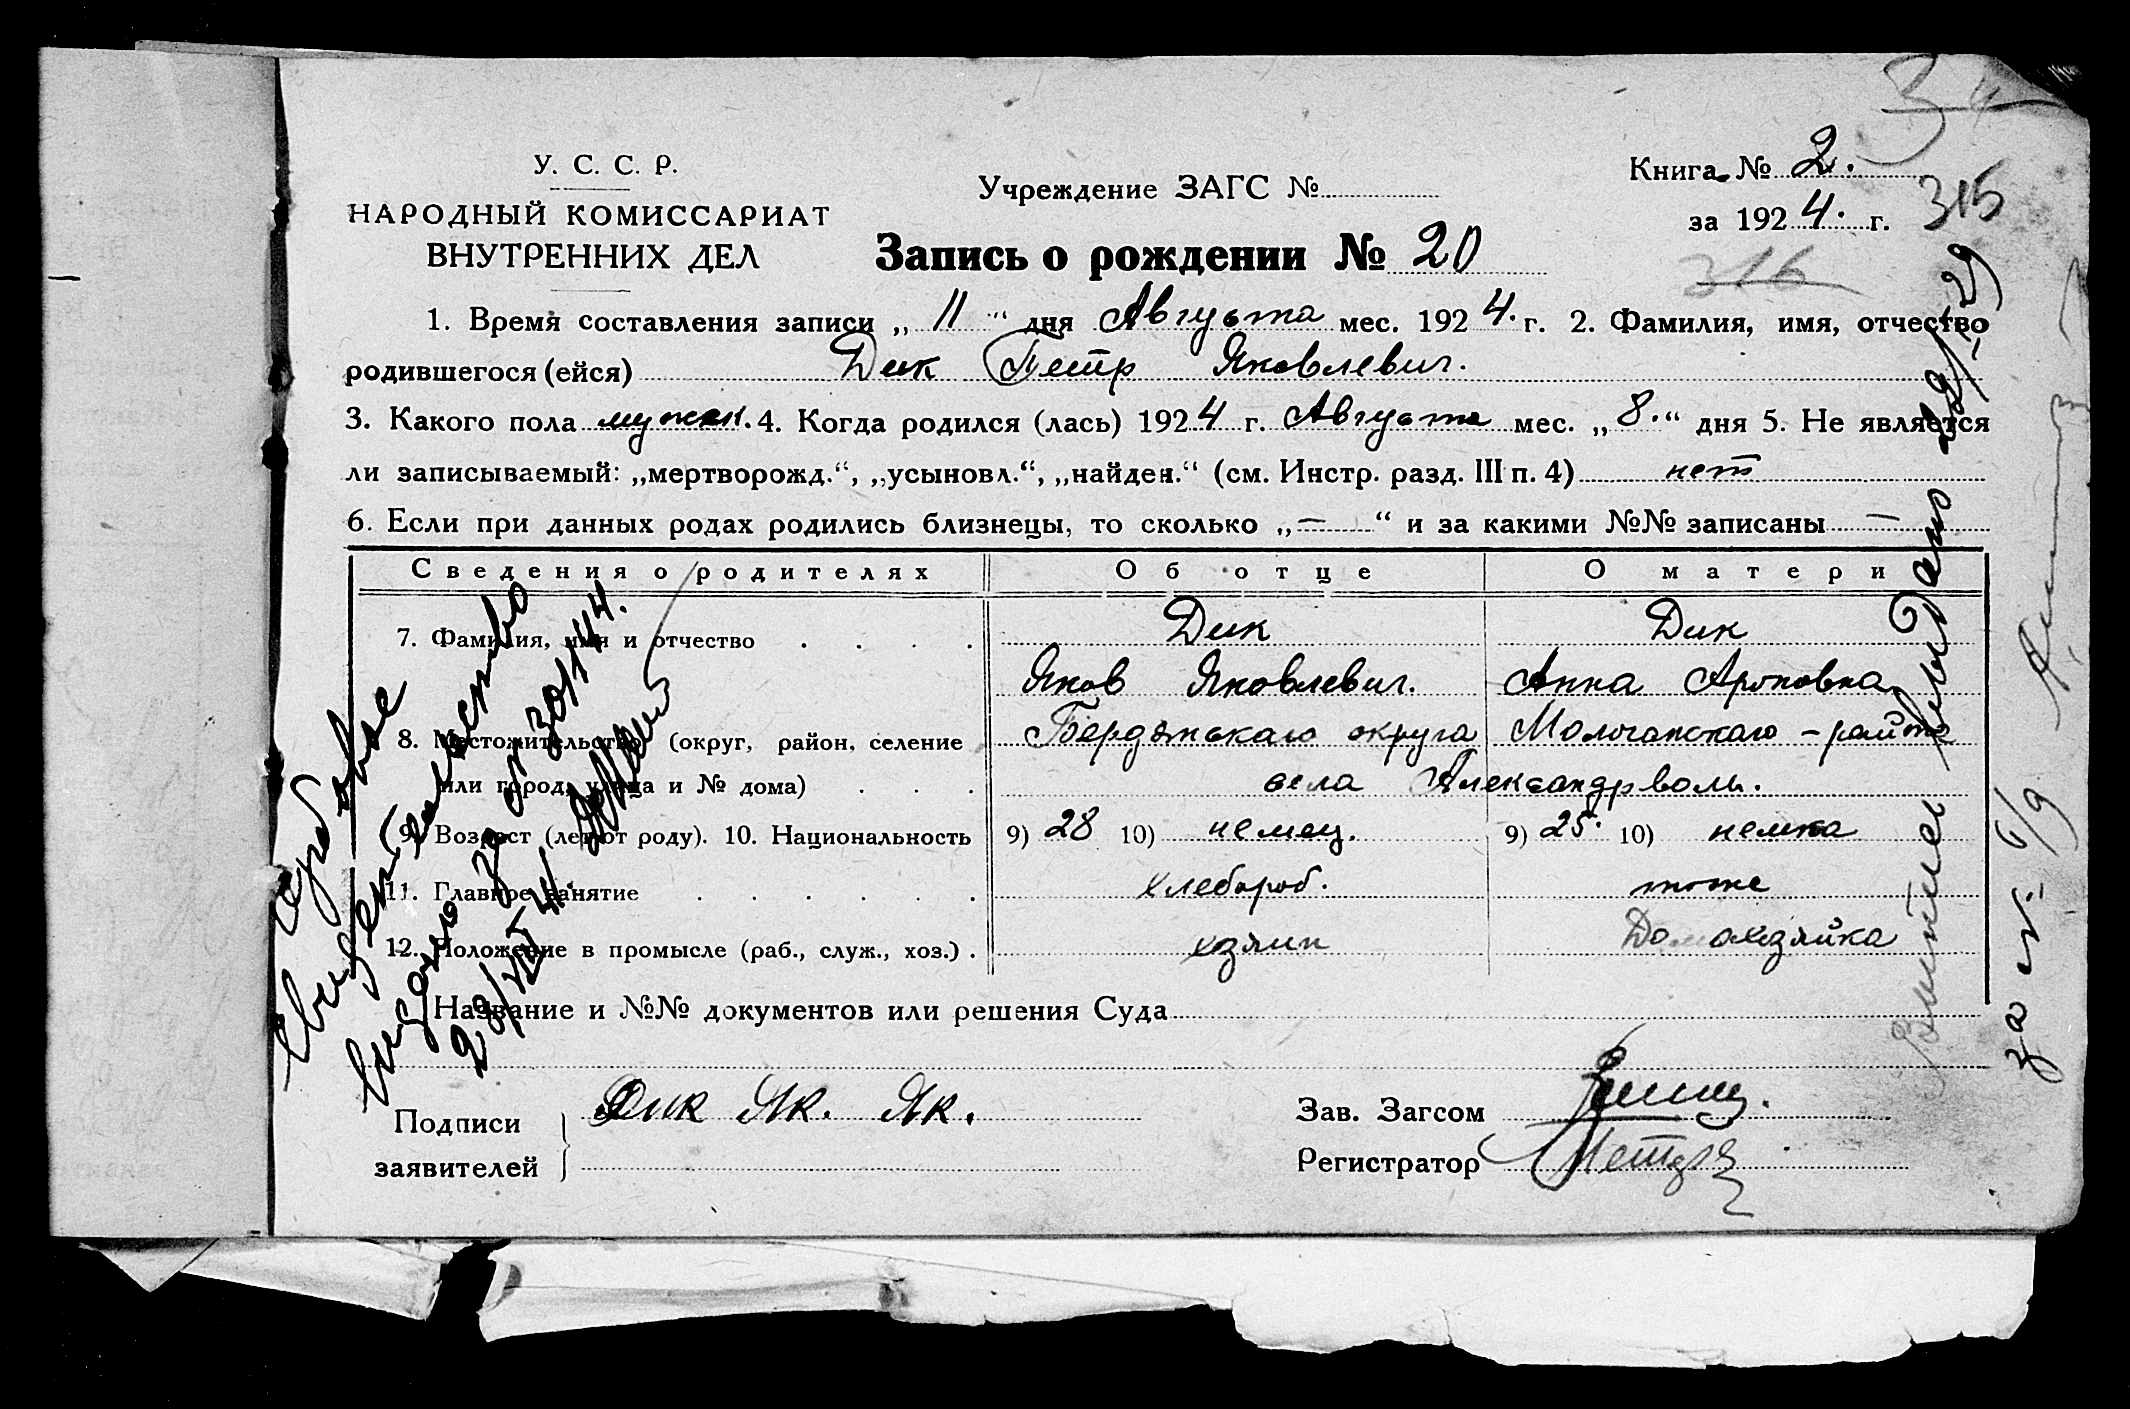 У. С. С. Р.
НАРОДНЫЙ КОМИССАРИАТ
ВНУТРЕННИХ ДЕЛ
Учреждение ЗАГС №
Книга № 2.
за 1924. г.
34
315
316
Запись о рождении № 20
1. Время составления записи „ 11 “ дня Августа мес. 1924. г. 2. Фамилия, имя, отчество
родившегося (ейся) Дик Петр Яковлевич.
3. Какого пола мужск. 4. Когда родился (лась) 1924 г. Августа мес. „ 8. “ дня 5. Не является
ли записываемый: „мертворожд.“, „усыновл.“, „найден.“ (см. Инстр. разд. III п. 4) нет
6. Если при данных родах родились близнецы, то сколько „ — “ и за какими №№ записаны —
Сведения о родителях Об отце О матери
7. Фамилия, имя и отчество Дик Дик
Яков Яковлевич. Анна Ароновна
8. Местожительство (округ, район, селение Бердянскаго округа Молочанскаго - района
или город, улица и № дома) села Александрволь.
9. Возраст (лет от роду). 10. Национальность 9) 28 10) немец. 9) 25. 10) немка
11. Главное занятие хлебороб. тоже
12. Положение в промысле (раб., служ., хоз.) хозяин Домохозяйка
Название и №№ документов или решения Суда
Подписи
заявителей
Дик Як. Як.
Зав. Загсом
Регистратор
свидетельство
выдано за от 30/I 44.
выдано
за №